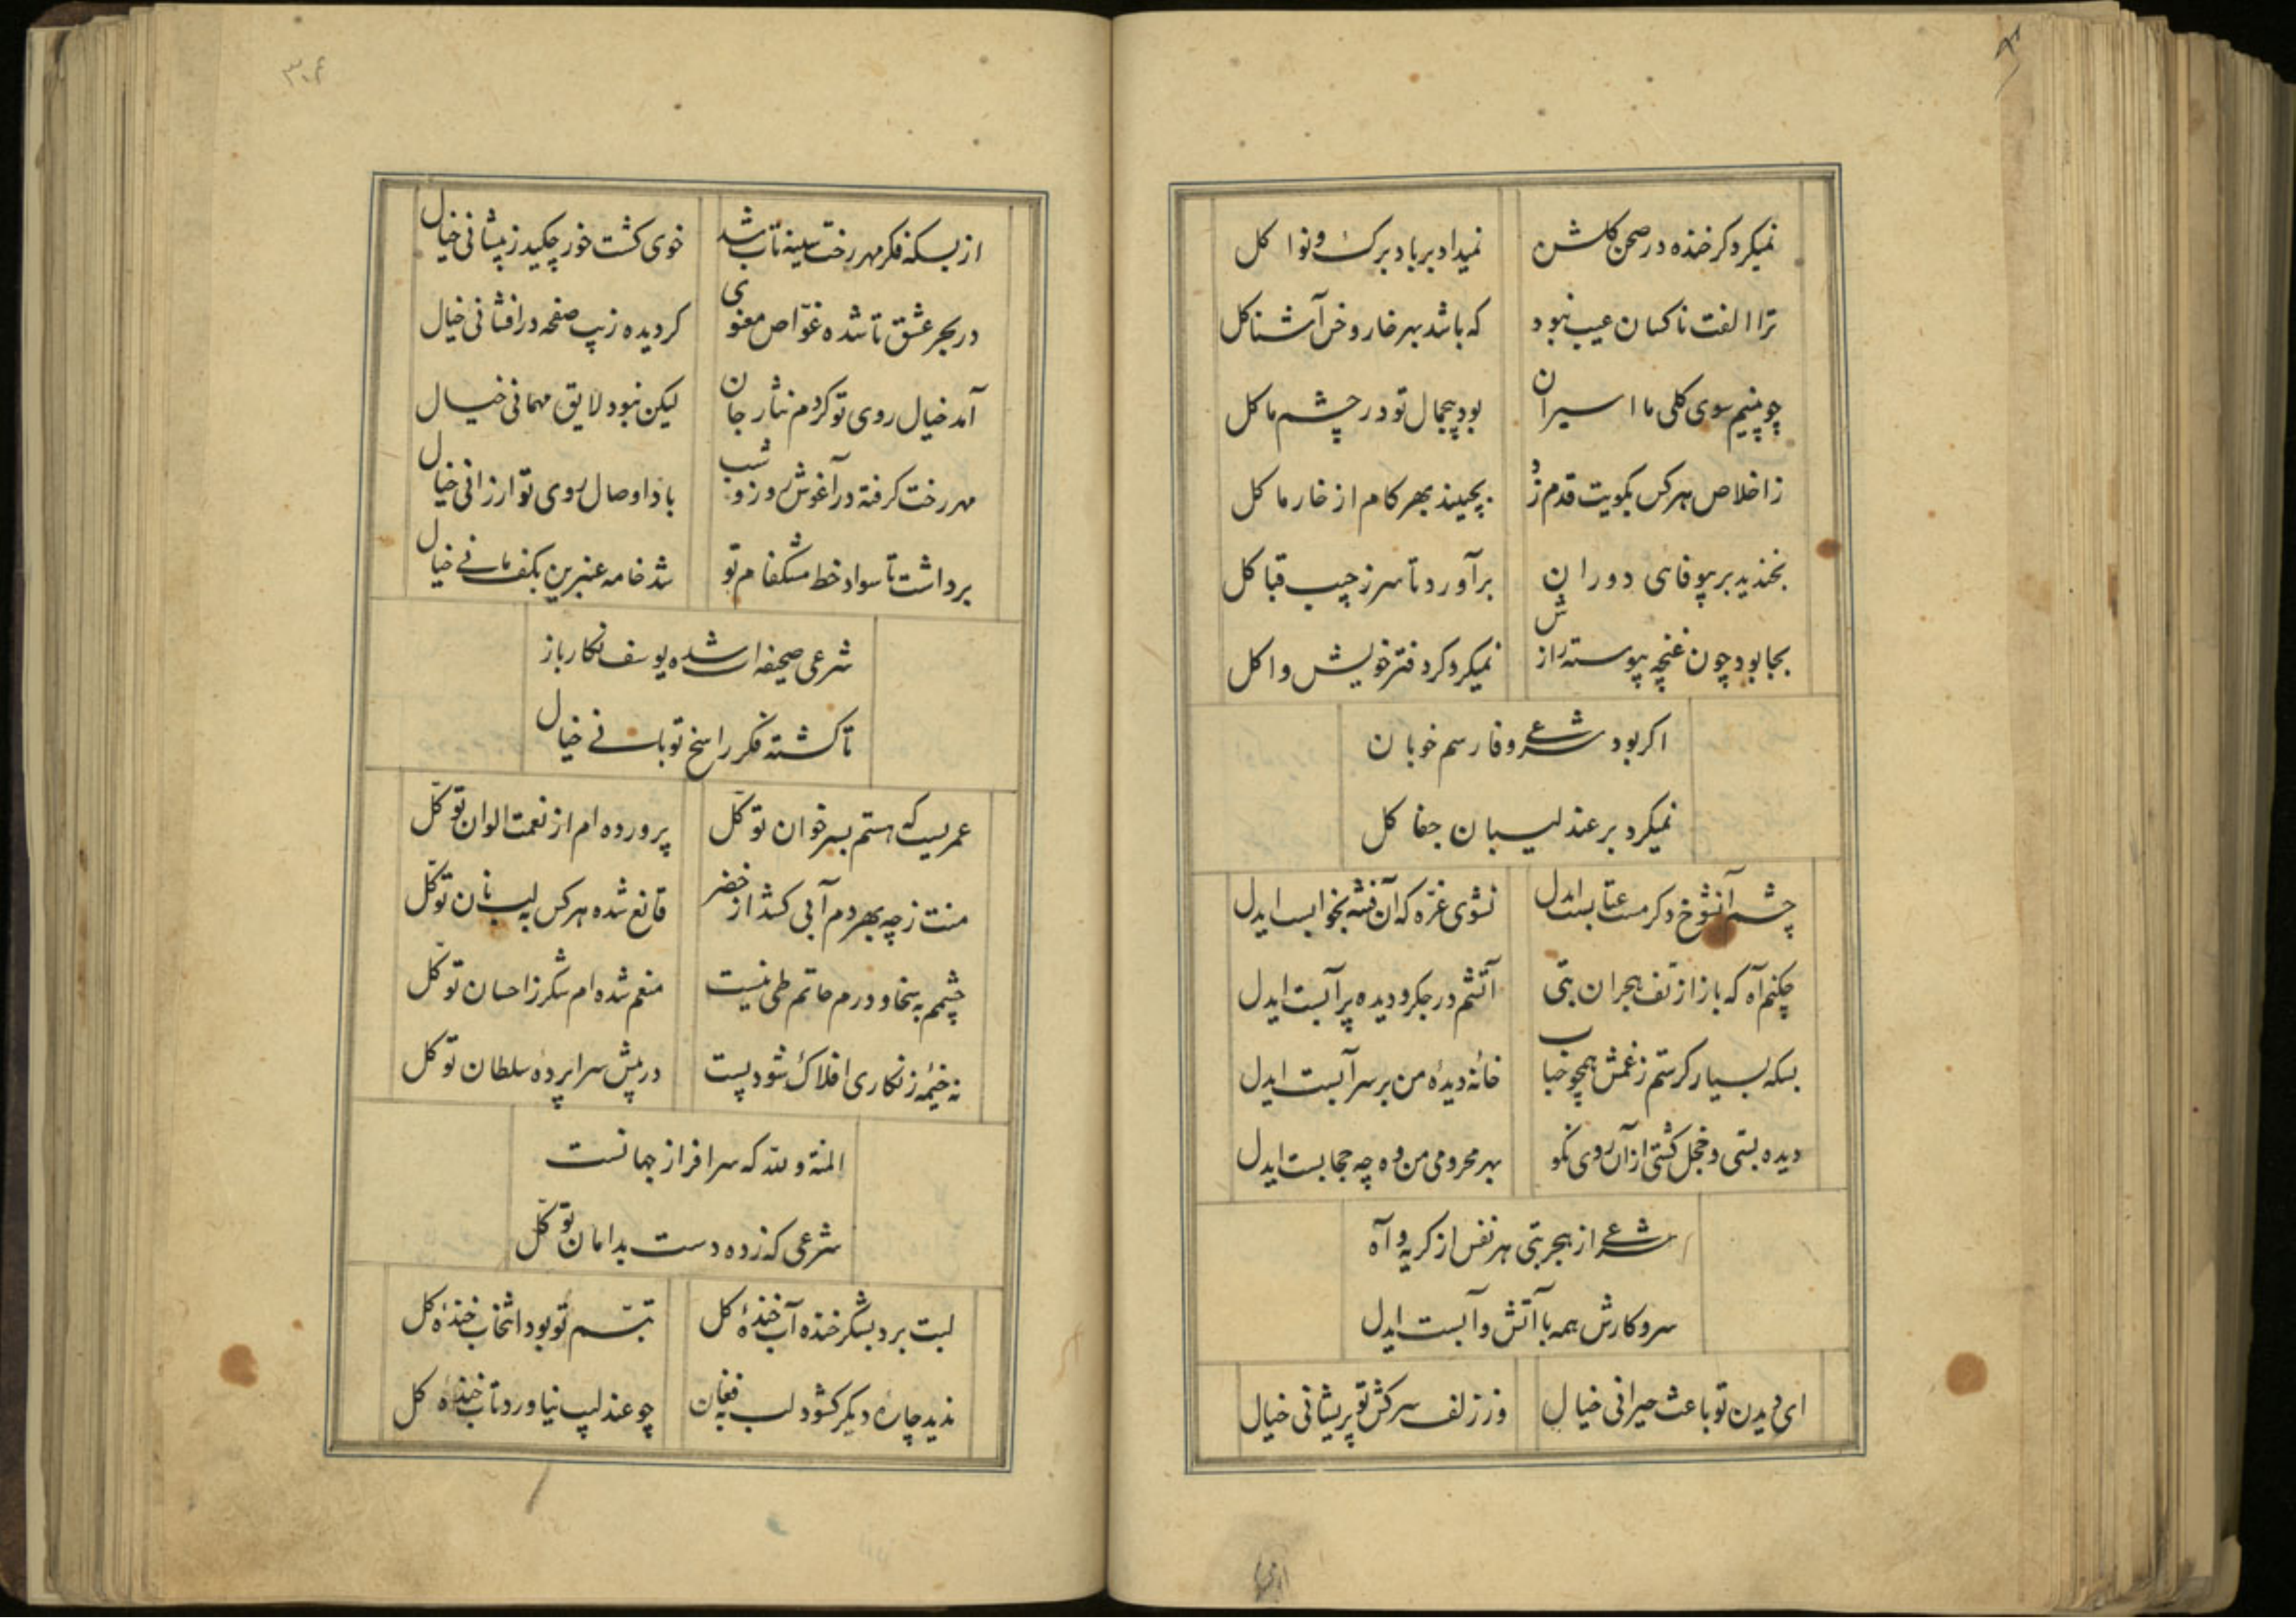 نمیکرد کر خنده در صحن کلشن نمیداد بر باد برک و نوا کل
ترا الفت ناکسان عیب نبود که باشد بهر خار و خس آشنا کل
چو بینیم سوی کلی ما اسیران بود بیجمال تو در چشم ما کل
ز اخلاص هر کس بکویت قدم زد بچیند بهر کام از خار ما کل
بخندید بر بیوفای دوران برآورد تا سر ز جیب قبا کل
بجا بود چون غنچه پیوسته رازش نمیکرد کر دفتر خویش وا کل
اکر بود شرعی وفا رسم خوبان
نمیکرد بر عندلیبان جفا کل
چشم آنشوخ دکر مست عتابست ایدل نشوی غرّه که آن فتنه بخوابست ایدل
چکنم آه که باز از تف هجران بتی آتشم در جکر و دیده پر آبست ایدل
بسکه بسیار کرستم ز غمش همچو حباب خانهٔ دیدهٔ من بر سر آبست ایدل
دیده بستی و خجل کشتی از آن روی نکو بهر محرومی من وه چه حجابست ایدل
شرعی از هجر بتی هر نفس از کریه و آه
سر و کارش همه با آتش و آبست ایدل
ای دیدن تو باعث حیرانی خیال وز زلف سرکش تو پریشانی خیال
۳۰۶
از بسکه فکر مهر رخت سینه تاب شد خوی کشت خور چکید ز پیشانی خیال
در بحر عشق تا شده غوّاص معنوی کردیده زیب صفحه در افشانی خیال
آمد خیال روی تو کردم نثار جان لیکن نبود لایق مهمانی خیال
مهر رخت کرفته در آغوش روز و شب بادا وصال روی تو ارزانی خیال
برداشت تا سواد خط مشکفام تو شد خامه عنبرین بکف مانی خیال
شرعی صحیفه ات شده یوسف نکار باز
تا کشته فکر راسخ تو بانی خیال
عمریست که هستم بسر خوان توکّل پرورده ام از نعمت الوان توکّل
منت ز چه بهر دم آبی کشد از خضر قانع شده هر کس به لب نان توکّل
چشمم به سخا و درم حاتم طی نیست منعم شده ام شکر ز احسان توکّل
نه خیمهٔ زنکاری افلاک شود پست در پیش سراپردهٔ سلطان توکل
المنة و لله که سرافراز جهانست
شرعی که زده دست بدامان توکّل
لبت برد بشکر خنده آب خندهٔ کل تبسّم تو بود انتخاب خندهٔ کل
ندید چارهٔ دیکر کشود لب به فغان چو عندلیب نیاورد تاب خندهٔ کل